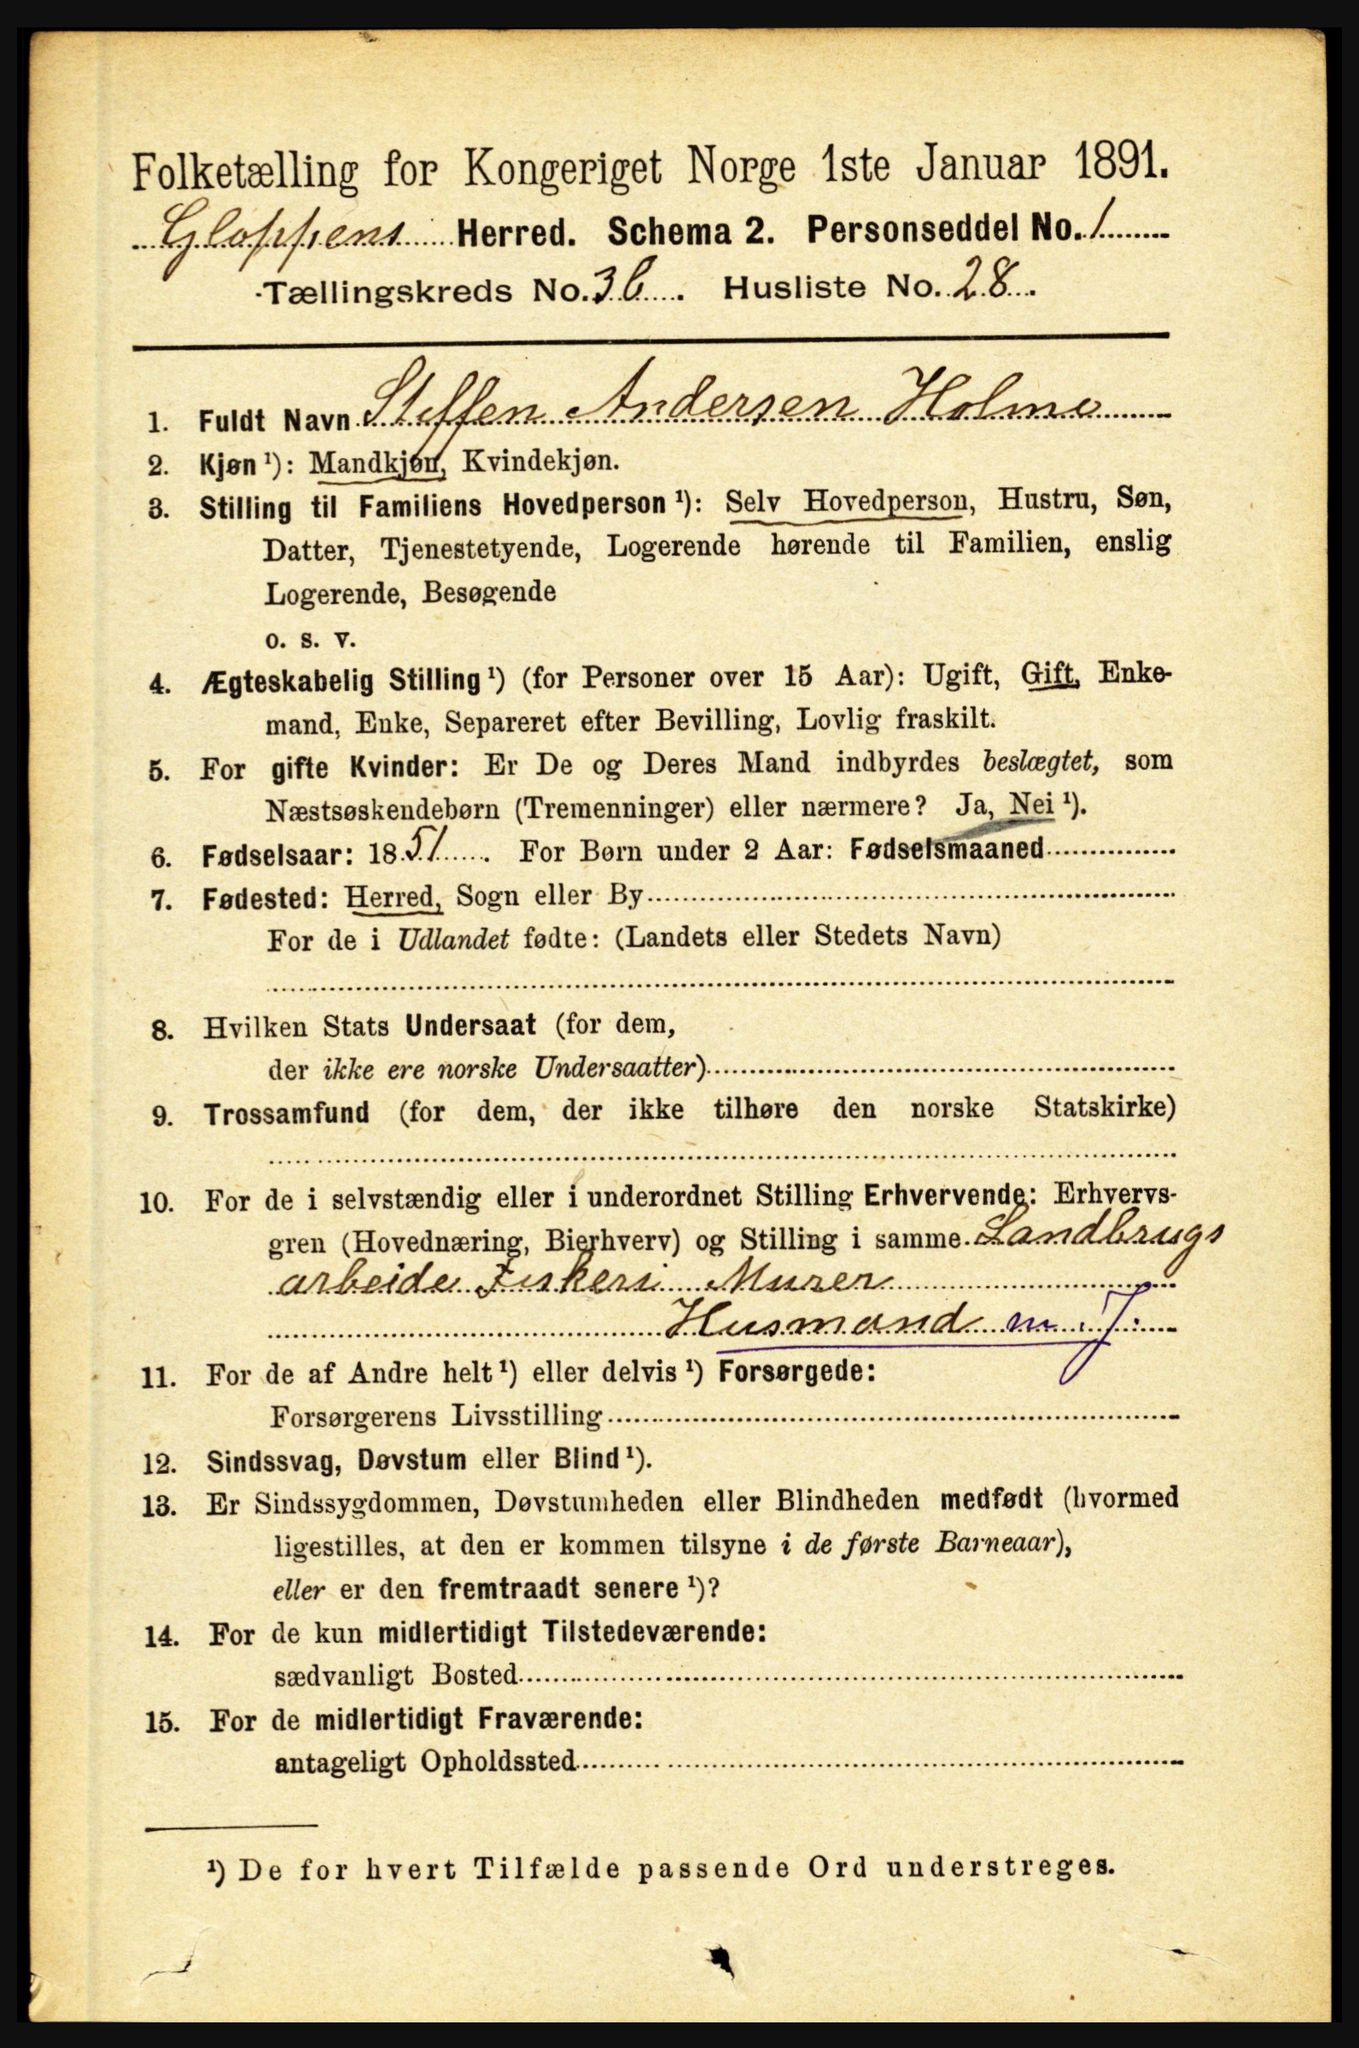 Folketælling for Kongeriget Norge 1ste Januar 1891.
Gloppens Herred. Schema 2. Personseddel No. 1
Tællingskreds No. 3b. Husliste No. 28.
1. Fuldt Navn Steffen Andersen Holme
2. Kjøn ¹): Mandkjøn, Kvindekjøn.
3. Stilling til Familiens Hovedperson ¹): Selv Hovedperson, Hustru, Søn,
Datter, Tjenestetyende, Logerende hørende til Familien, enslig
Logerende, Besøgende
o. s. v.
4. Ægteskabelig Stilling ¹) (for Personer over 15 Aar): Ugift, Gift, Enke-
mand, Enke, Separeret efter Bevilling, Lovlig fraskilt.
5. For gifte Kvinder: Er De og Deres Mand indbyrdes beslægtet, som
Næstsøskendebørn (Tremenninger) eller nærmere? Ja, Nei ¹).
6. Fødselsaar: 1851. For Børn under 2 Aar: Fødselsmaaned
7. Fødested: Herred, Sogn eller By
For de i Udlandet fødte: (Landets eller Stedets Navn)
8. Hvilken Stats Undersaat (for dem,
der ikke ere norske Undersaatter)
9. Trossamfund (for dem, der ikke tilhøre den norske Statskirke)
10. For de i selvstændig eller i underordnet Stilling Erhvervende: Erhvervs-
gren (Hovednæring, Bierhverv) og Stilling i samme. Landbrugs
arbeide Fiskeri Murer
Husmand m. J.
11. For de af Andre helt ¹) eller delvis ¹) Forsørgede:
Forsørgerens Livsstilling
12. Sindssvag, Døvstum eller Blind ¹).
13. Er Sindssygdommen, Døvstumheden eller Blindheden medfødt (hvormed
ligestilles, at den er kommen tilsyne i de første Barneaar),
eller er den fremtraadt senere ¹)?
14. For de kun midlertidigt Tilstedeværende:
sædvanligt Bosted
15. For de midlertidigt Fraværende:
antageligt Opholdssted
¹) De for hvert Tilfælde passende Ord understreges.